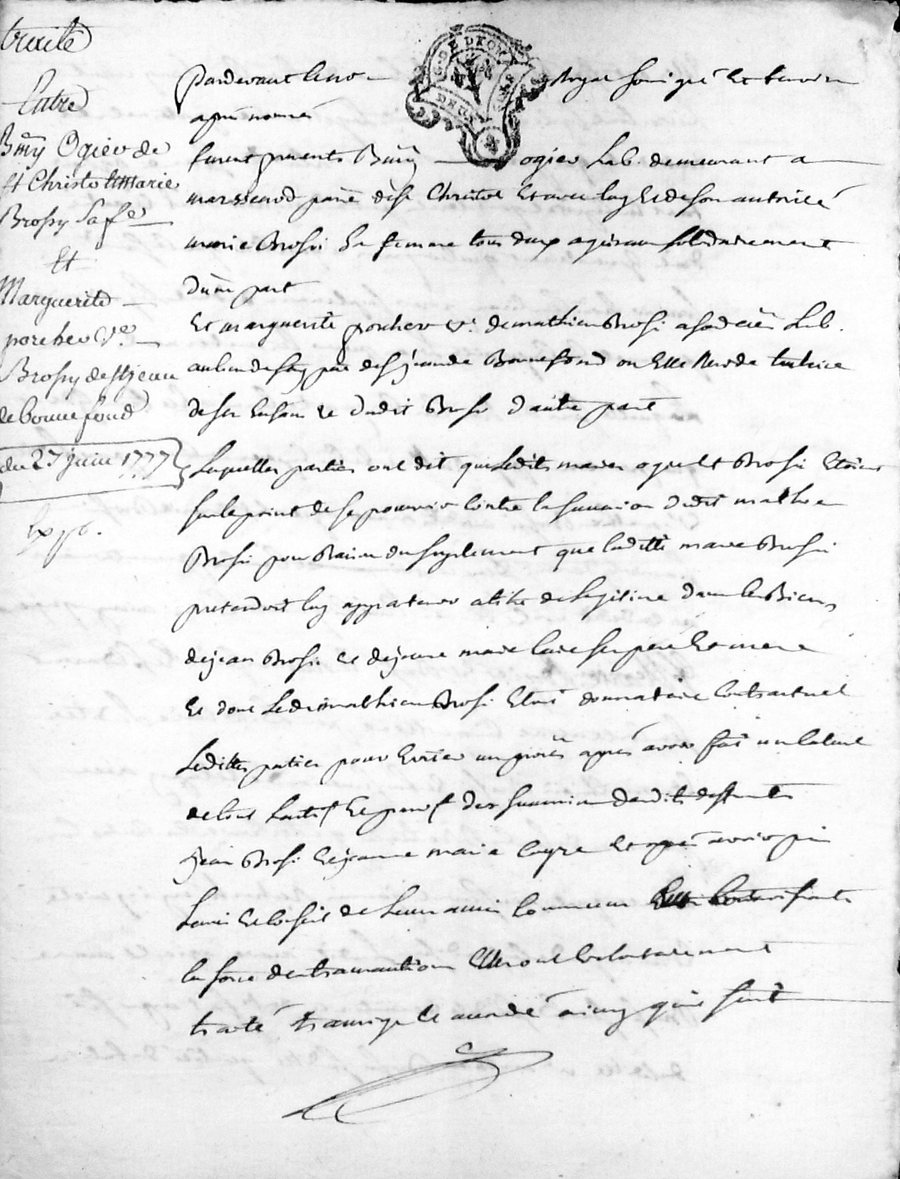 traité
Entre
Bmy Ogier de
St Christo et Marie
Brossy Sa fe
Et
Marguerite
porcher Ve
Brossy de st jean
de bonnefond
du 27 juin 1777
Exp.
DEUX
pardevant le no Royal soussigné Et temoins
apres nommés
furent presents Bmy ogier Lab. demeurant a
paroisse de st Christot Et avec luy Et de son autorité
marie Brossi Sa femme tous deux agissant solidairement
d'une part
Et marguerite porcher ve. de mathieu Brossi Lab.
au lieu de par de st jean de Bonnefond ou Elle Reside tutrice
de ses Enfans Et dudit Brossi d'autre part
Lesquelles parties ont dit que Lesdits maries ogier Et Brossi Etoient
sur le point de se pourvoir contre la succession dudit mathieu
Brossi pour Raison du suplement que laditte marie Brossi
pretendoit luy appartenir a titre de Legitime dans les Biens
de jean Brossi Et de jeanne marie laire ses pere Et mere
Et dont Ledit mathieu Brossi Etoit donnataire Contractuel
Lesdittes parties pour Eviter un procès après avoir fait un Calcul
de tout Lactif Et passif des successions desdits deffunts
jean Brossi Et jeanne marie layre Et après avoir pris
Lavis Et Conseil de Leurs amis Communs
la force de transaction Elles ont volontairement
traité transigé Et accordé ainsy que suit